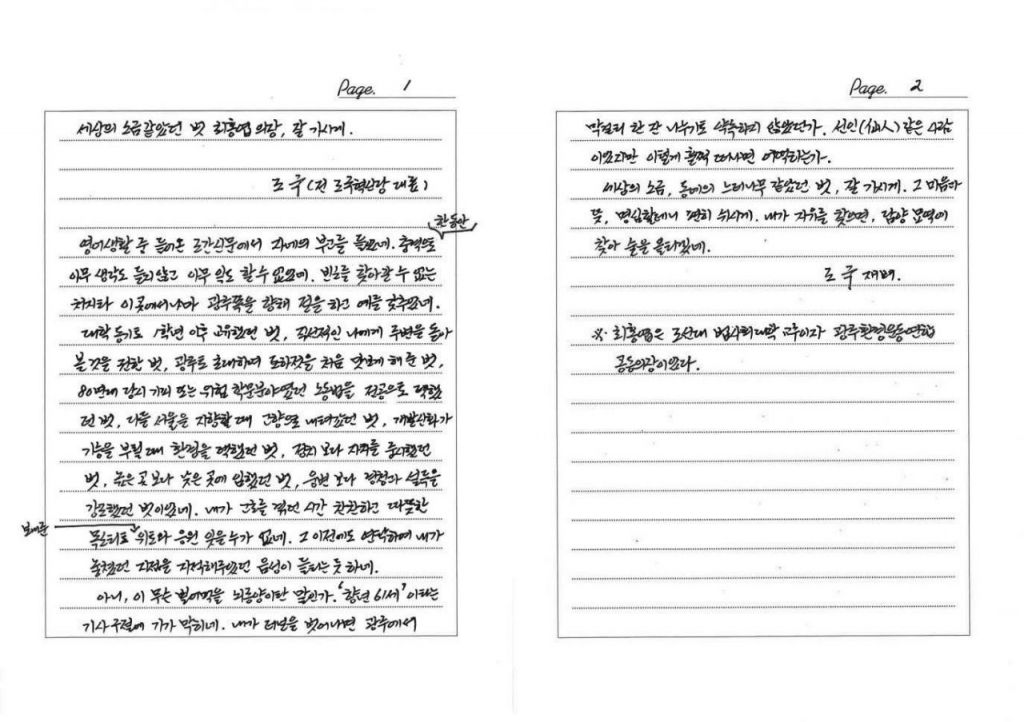 Page. 1
세상의 소금같았던 벗 최홍엽 의장, 잘 가시게.
조 국 (전 조국혁신당 대표)
한동안
영어생활 중 들어온 조간신문에서 자네의 부고를 들었네. 충격으로
아무 생각도 들지 않고 아무 일도 할 수 없었네. 빈소를 찾아갈 수 없는
처지라 이곳에서나마 광주쪽을 향해 절을 하고 예를 갖추었네.
대학 동기로 1학년 이후 교유했던 벗, 직선적인 나에게 주변을 돌아
볼 것을 권한 벗, 광주로 초대하여 토하젓을 처음 맛보게 해 준 벗,
80년대 당시 기피 또는 위험 학문분야였던 노동법을 전공으로 택했
던 벗, 다들 서울을 지향할 때 고향으로 내려갔던 벗, 개발신화가
기승을 부릴 때 환경을 택했던 벗, 정치 보다 자치를 중시했던
벗, 높은 곳 보다 낮은 곳에 임했던 벗, 웅변 보다 경청과 설득을
강조했던 벗이었네. 내가 고초를 겪던 시간 찬찬하고 따뜻한
보내준
목소리로 위로와 응원 잊을 수가 없네. 그 이전에도 연락하여 내가
놓쳤던 지점을 지적해주었던 음성이 들리는 듯 하네.
아니, 이 무슨 벌어먹을 뇌종양이란 말인가. '향년 61세' 이라는
기사 구절에 기가 막히네. 내가 터널을 벗어나면 광주에서
Page. 2
막걸리 한 잔 나누기로 약속하지 않았던가. 선인(仙人) 같은 사람
이었다만 이렇게 훌쩍 떠나면 어떡하는가.
세상의 소금, 동네의 느티나무 같았던 벗, 잘 가시게. 그 마음과
뜻, 명심할테니 편히 쉬시게. 내가 자유를 찾으면, 담양 묘역에
찾아 술을 올리겠네.
조 국 재배.
※ 최홍엽은 조선대 법사회대학 교수이자 광주환경운동연합
공동의장이었다.